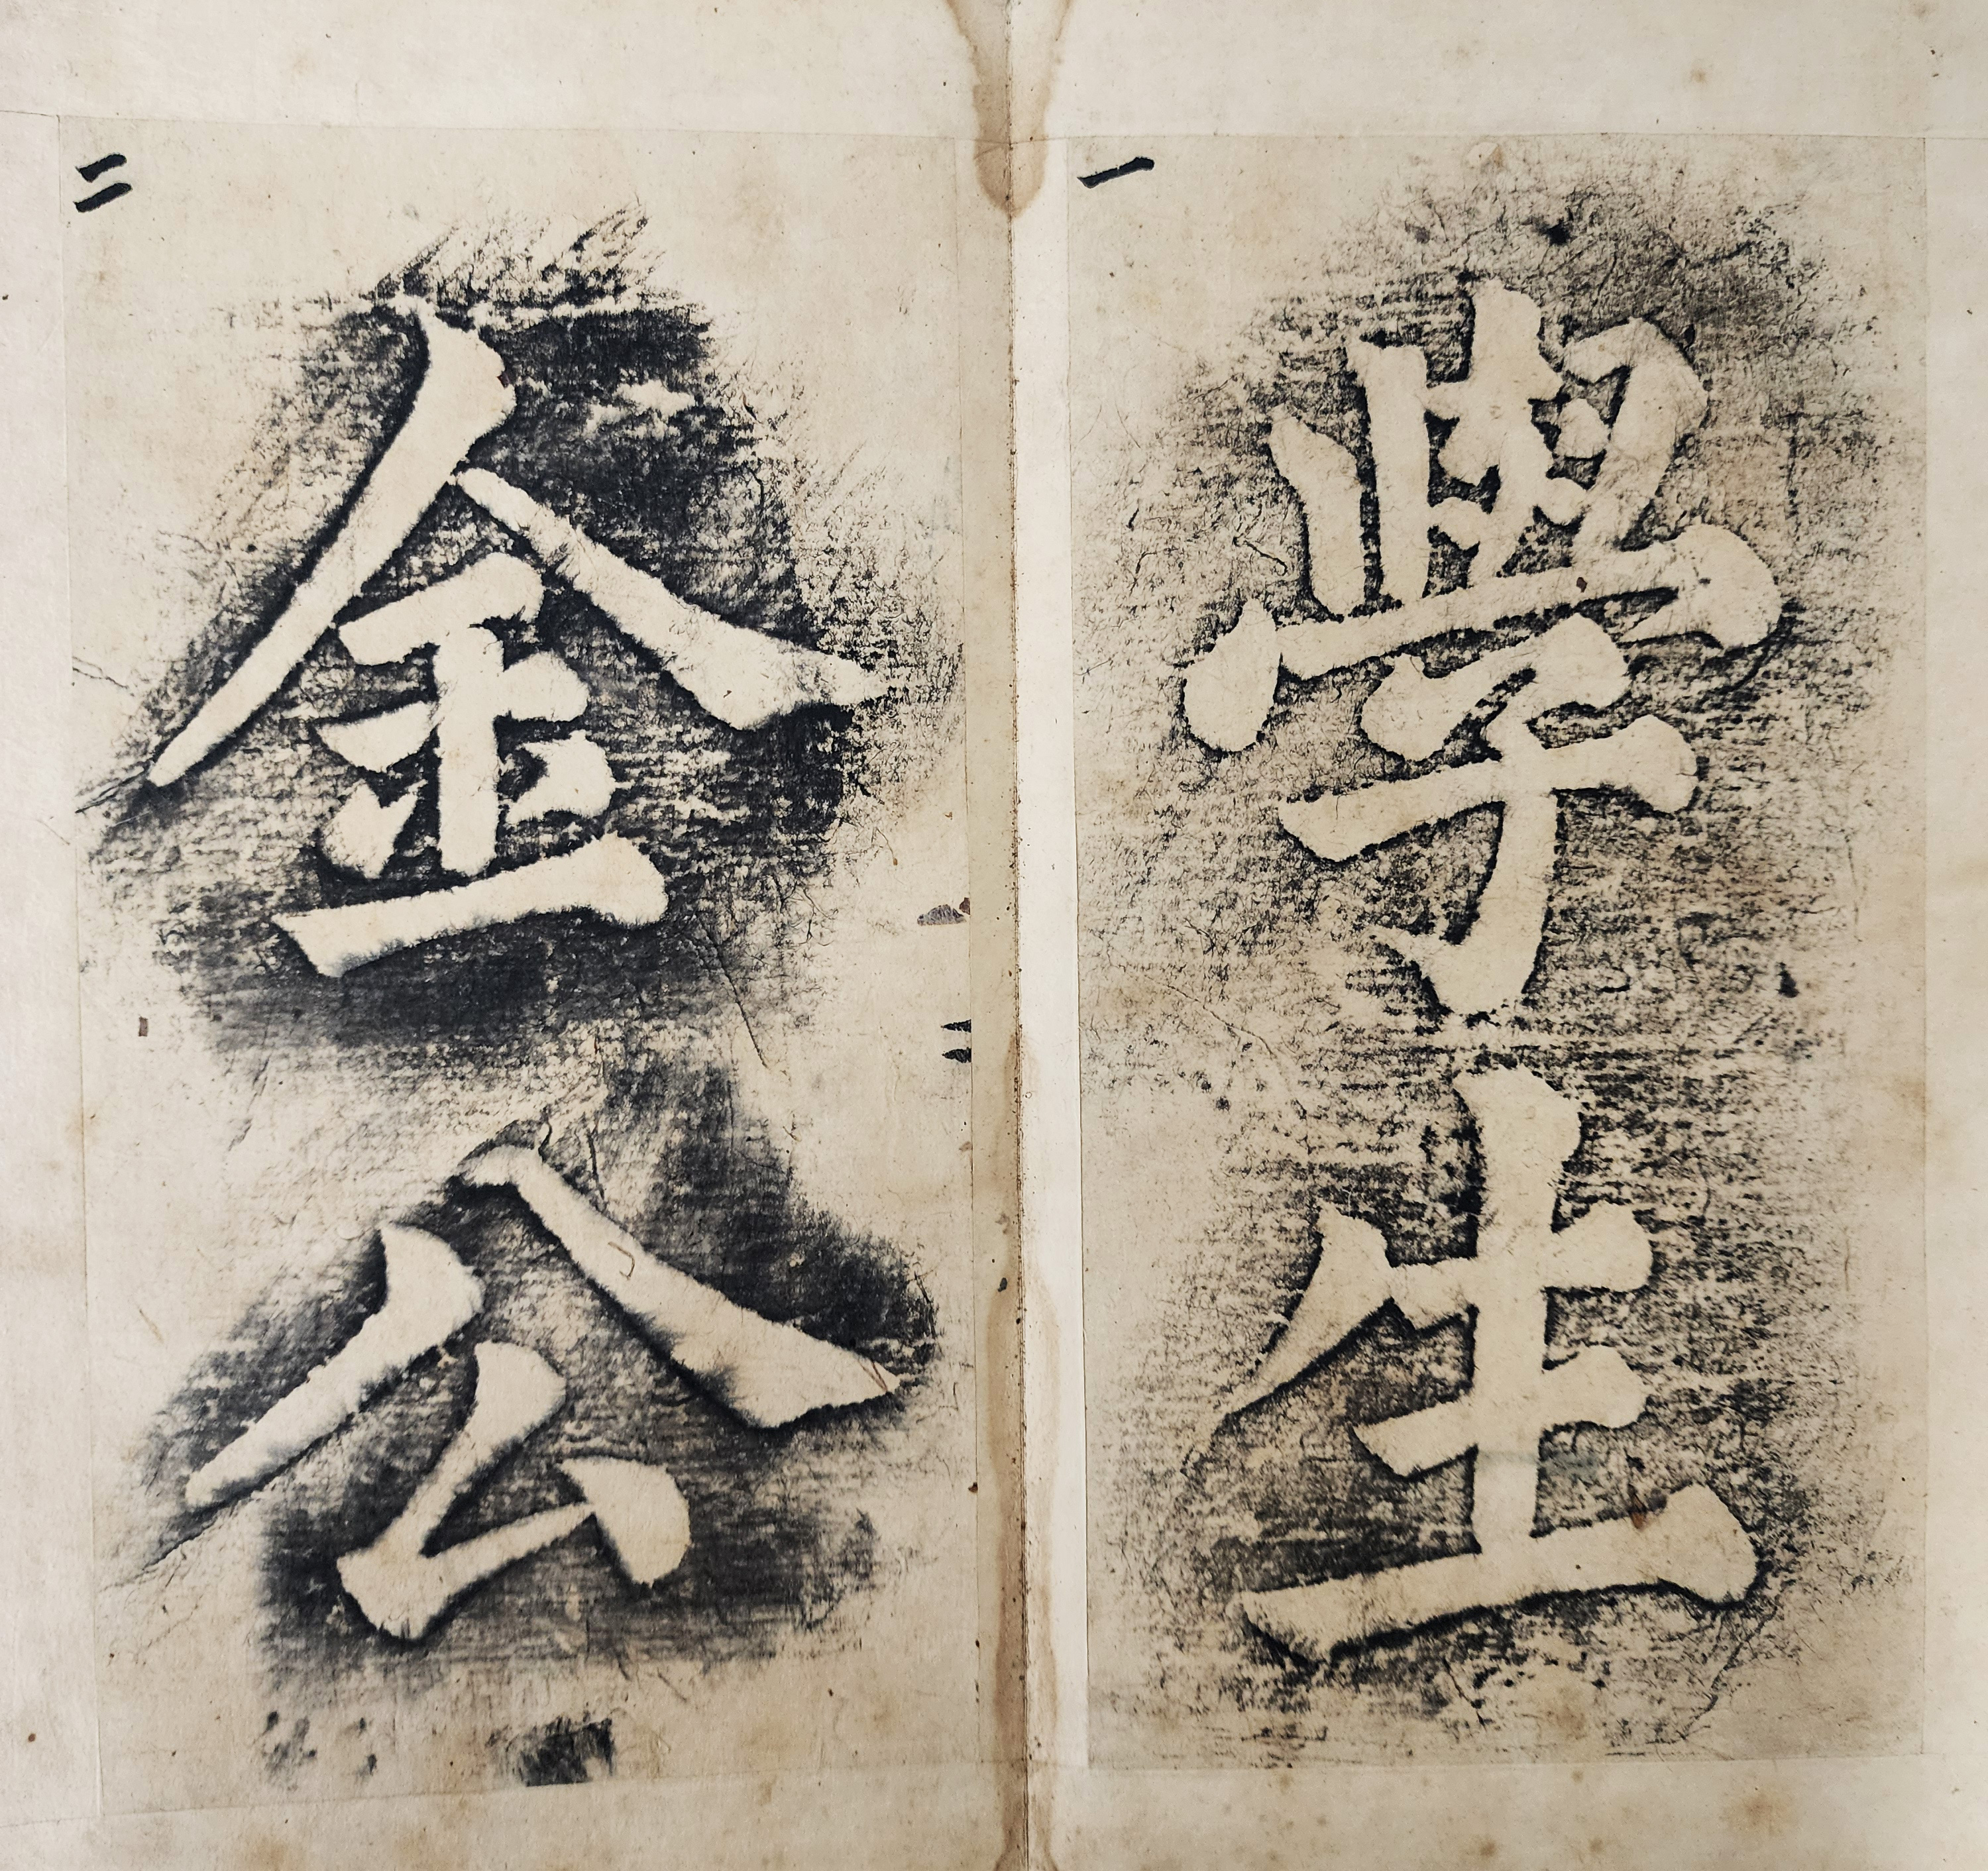 一
學生
二
金公